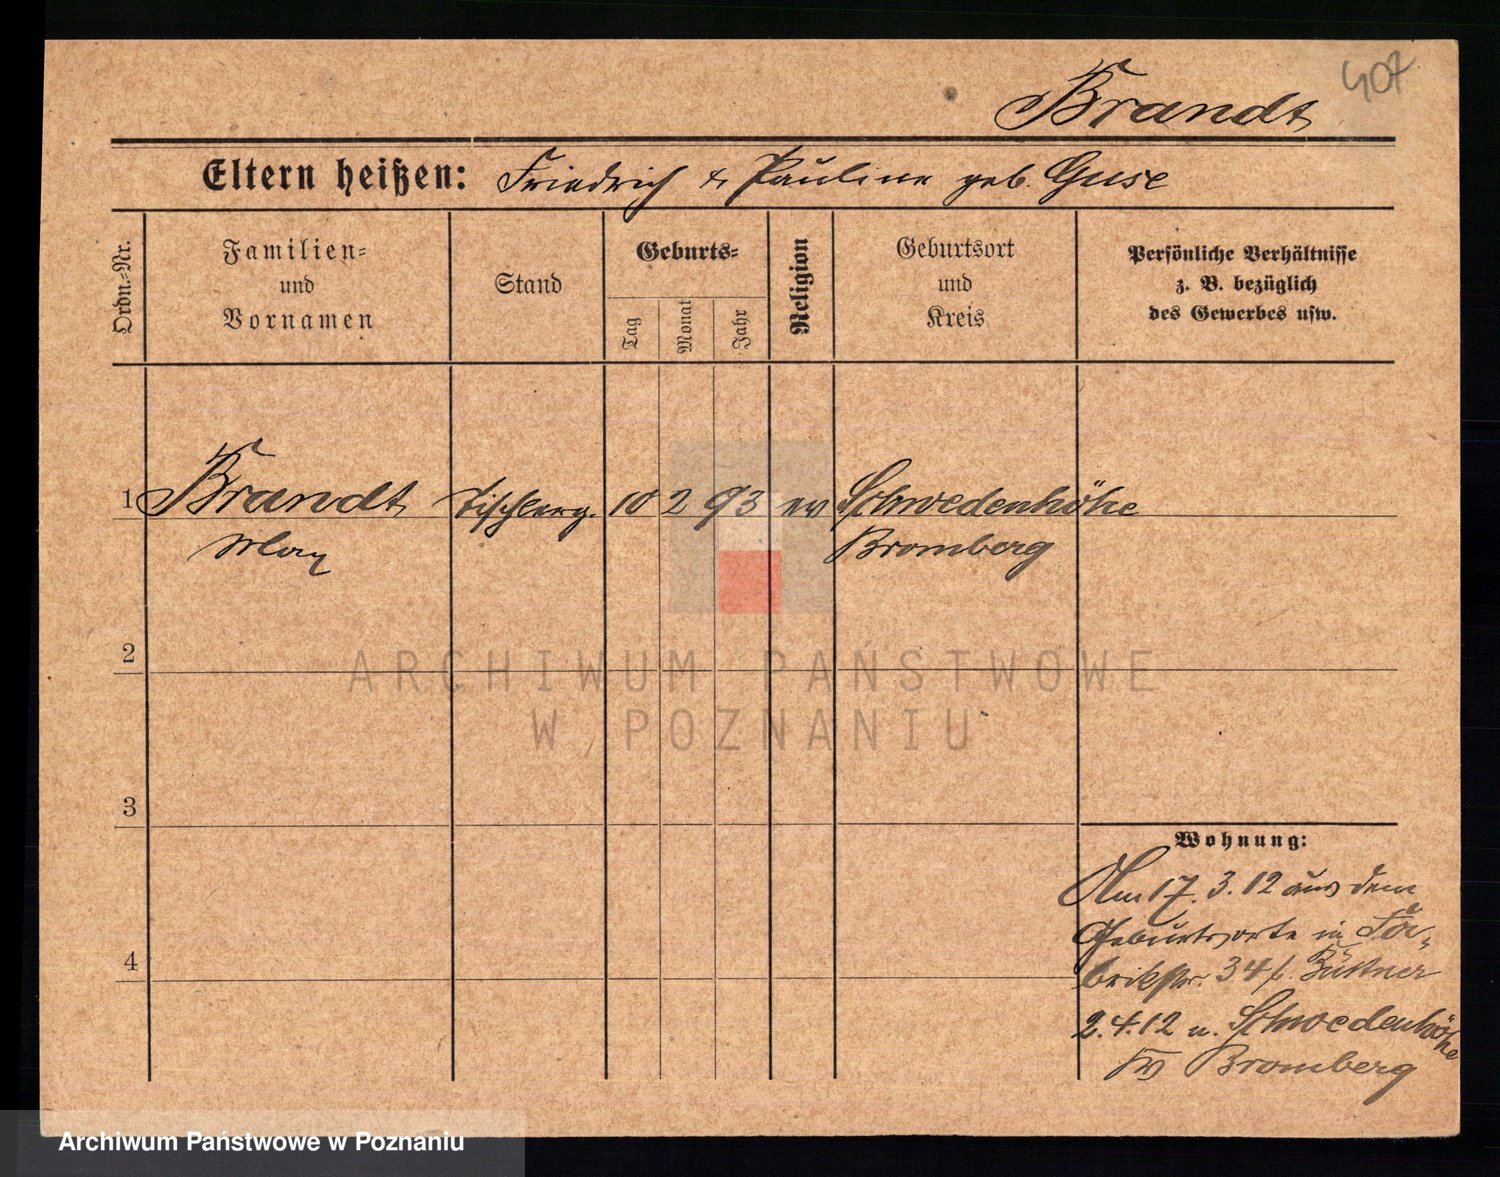 407
Brandt
Eltern heißen: Friedrich & Pauline geb. Guse
Ordn.-Nr.
Familien-
und
Vornamen
Stand
Geburts-
Tag
Monat
Jahr
Religion
Geburtsort
und
Kreis
Persönliche Verhältnisse
z. B. bezüglich
des Gewerbes usw.
1 Brandt Tischlerg. 10 2 93 ev Schwedenhöhe
Max Bromberg
2
3
4
Wohnung:
Am 17.3.12 aus dem
Geburtsorte in Fa-
brikstr. 34 b. Büttner
2.4.12 n. Schwedenhöhe
Kr Bromberg
ARCHIWUM PAŃSTWOWE
W POZNANIU
Archiwum Państwowe w Poznaniu